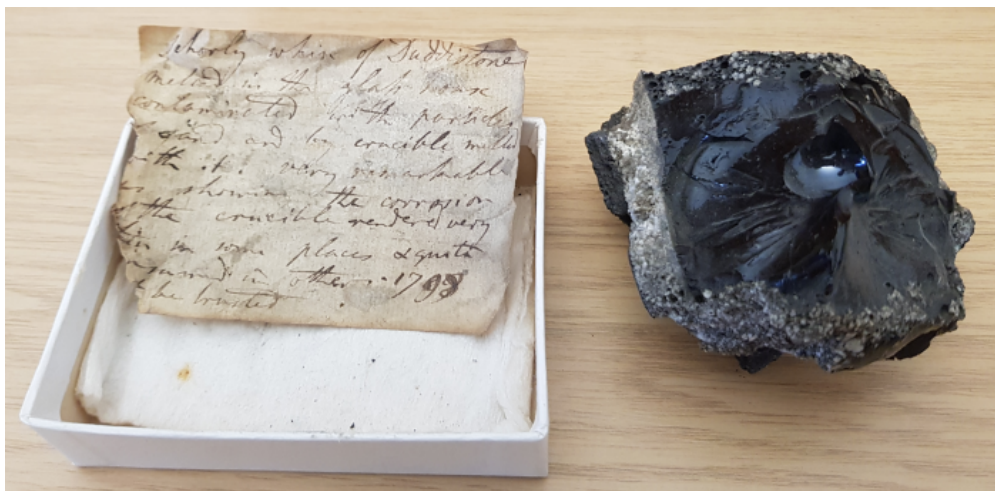 Scherly whin of Duddistone
melted in the glass house
contaminated with particles
of sand and by crucible melted
with it. very remarkable
as showing the corrosion
of the crucible rendered very
thin in some places & quite
consumed in others. 1798
to be trusted